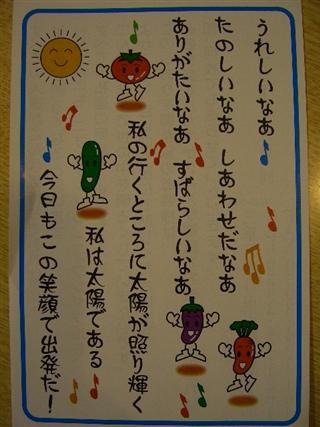 うれしいなあ
たのしいなあ　しあわせだなあ
ありがたいなあ　すばらしいなあ
私の行くところに太陽が照り輝く
私は太陽である
今日もこの笑顔で出発だ！